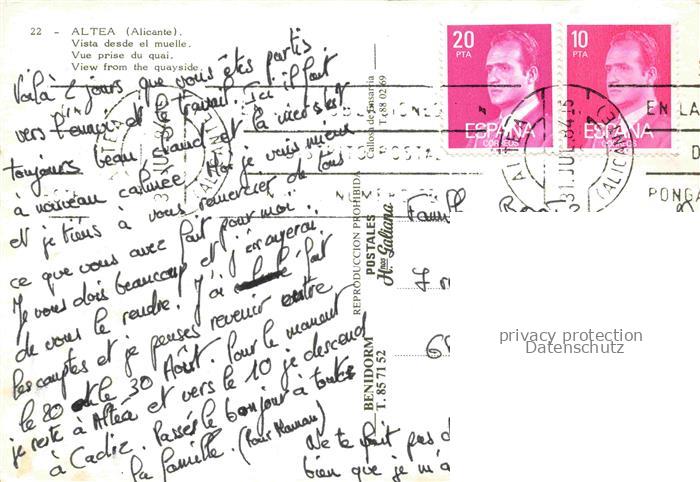 22 - ALTEA (Alicante).
Vista desde el muelle.
Vue prise du quai.
View from the quayside.
Voilà 2 jours que vous êtes partis
vers l'ennui et le travail. Ici il fait
toujours beau, chaud et la vie s'est
à nouveau calmée. Moi je vais mieux
et je tiens à vous remercier de tous
ce que vous avez fait pour moi.
Je vous dois beaucoup et j'essayerai
de vous le rendre. J'ai fait
les comptes et je penses revenir entre
le 20 et le 30 Août. Pour le moment
je reste à Altea et vers le 10 je descend
à Cadiz. Passés le bonjour à toute
la famille. (Pour Maman)
Ne te fait pas d
bien que je m'a
Callosa de Ensarria
T. 88 02 69
REPRODUCCION PROHIBIDA
POSTALES
Hnos Galiana
BENIDORM
T. 85 71 52
20
PTA
ESPAÑA
CORREOS
10
PTA
ESPAÑA
CORREOS
ALTEA
31 JUL 84
(ALICANTE)
EN LA
D
PONGA
Fam
privacy protection
Datenschutz